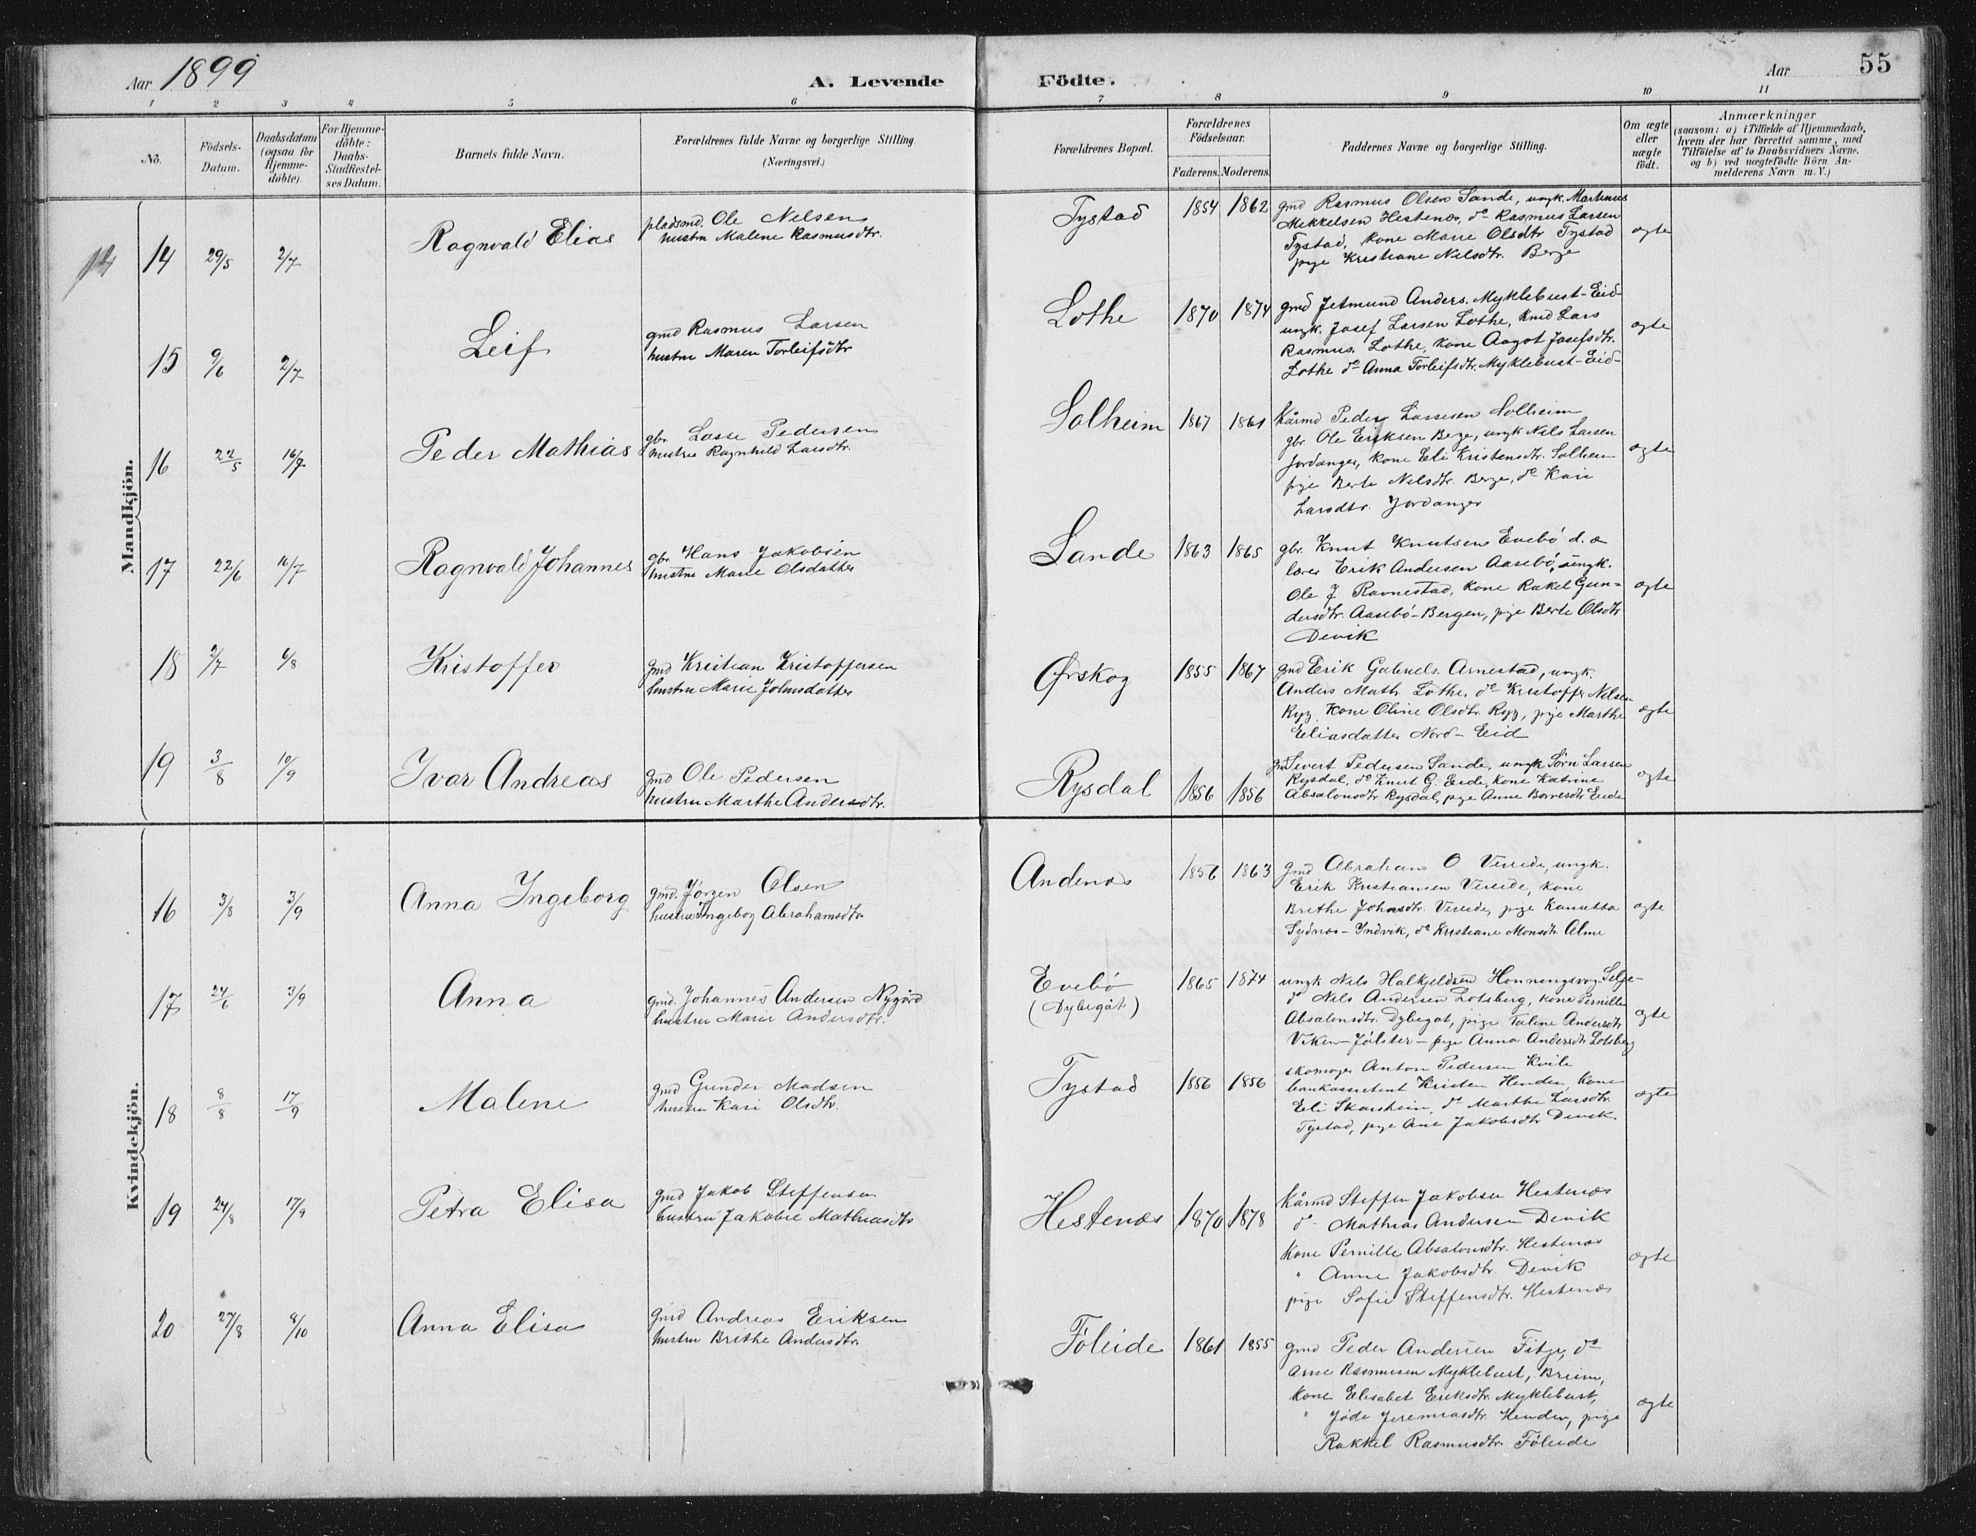 Aar 1899
A. Levende Födte.
Aar 55
1 2 3 4 5 6 7 8 9 10 11
No.
Födsels-
Datum.
Daabsdatum
(ogsaa for
Hjemme-
döbte).
For Hjemme-
döbte:
Daabs-
Stadfæstel-
ses Datum.
Barnets fulde Navn.
Forældrenes fulde Navne og borgerlige Stilling.
(Næringsvei.)
Forældrenes Bopæl.
Forældrenes
Födselsaar.
Faderens. Moderens.
Faddernes Navne og borgerlige Stilling.
Om ægte
eller
uægte
födt.
Anmærkninger
(saasom: a) i Tilfælde af Hjemmedaab,
hvem der har forrettet samme, med
Tilföielse af to Daabsvidners Navne,
og b) ved uegtefödte Börn An-
melderens Navn m. V.)
Mandkjön.
14 29/5 2/7 Ragnvald Elias
pladsmd. Ole Nilsen
hustru Malene Rasmusdtr.
Tystad 1854 1862
gmd Rasmus Olsen Sande, ungk. Martenus
Mikkelsen Hestenæs, do Rasmus Larsen
Tystad, kone Marie Olsdtr Tystad
pige Kristiane Nilsdtr. Berge
ægte
15 9/6 2/7 Leif
gmd Rasmus Larsen
hustru Maren Torleifsdtr
Lothe 1870 1874
gmd Jetmund Anders. Myklebust-Eid-
ungk. Josef Larsen Lothe, Knud Lars
Rasmus. Lothe, kone Aagot Josefsdtr.
Lothe do Anna Torleifsdtr. Myklebust-Eid-
ægte
16 22/5 16/7 Peder Mathias
gbr. Lasse Pedersen
hustru Ragnhild Larsdtr.
Solheim 1867 1861
Kårmd Peder Lassesen Solheim
gbr Ole Eriksen Berge, ungk Nils Larsen
Jordanger, kone Eli Kristensdtr. Solheim
pige Berte Nilsdtr. Berge, do Kari
Larsdtr. Jordanger
ægte
17 22/6 16/7 Ragnvald Johannes
gbr. Hans Jakobsen
hustru Marie Olsdatter
Sande 1863 1865
gbr. Knut Knutsen Evebö d. æ
lærer Erik Andersen Aasebö, ungk.
Ole J Ravnestad, kone Rakel Gun-
dersdtr. Aasebö-Bergen, pige Berte Olsdtr
Devik
ægte
18 2/7 6/8 Kristoffer
gmd Kristian Kristoffersen
hustru Marie Johnsdatter
Ørskog 1855 1867
gmd Erik Gabriels. Arnestad, ungk.
Anders Math. Lothe, do Kristoffer Nilsen
Ryg, Kone Oline Olsdtr. Ryg, pige Marthe
Eliasdatter Nord-Eid
ægte
19 3/8 10/9 Ivar Andreas
gmd Ole Pedersen
hustru Marthe Andersdtr.
Rysdal 1856 1856
Sivert Pedersen Sande, ungk Sörn Larsen
Rysdal, do Knut G. Eide, kone Katrine
Absalonsdtr Rysdal, pige Anne Borresdtr Eide
ægte
Kvindekjön.
16 3/8 3/9 Anna Ingeborg
gmd. Jörgen Olsen
hustru Ingebog Abrahamsdtr.
Andenæs 1856 1863
gmd Abraham O Vereide, ungk.
Erik Kristiansen Vereide, kone
Brithe Johnsdtr. Vereide, pige Kanutta
Sydnæs-Indvik, do Kristiane Monsdtr. Alme
ægte
17 24/6 3/9 Anna
gmd. Johannes Andersen Nygård
hustru Marie Andersdtr.
Evebö
(Dybegåt) 1865 1874
ungk Nils Halkjeldsen Honningsvog Selje-
do Nils Andersen Lotsberg, kone Pernille
Absalonsdtr. Dybegat, pige Taline Andersdtr
Viken-Jölster- pige Anna Andersdtr. Lotsberg
ægte
18 8/8 17/9 Malene
gmd Gunder Madsen
hustru Kari Olsdtr.
Tystad 1856 1856
skomager Anton Pedersen Kvile
bankassistent Kristen Henden, kone
Eli Skarstein, do Marthe Larsdtr.
Tystad, pige Ane Jakobsdtr Devik
ægte
19 24/8 17/9 Petra Elisa
gmd Jakob Steffensen
hustru Jakobie Mathiasdtr
Hestenæs 1870 1878
Kårmd Steffen Jakobsen Hestenæs
do Mathias Andersen Devik
Kone Pernille Absalonsdtr. Hestenæs
" Anne Jakobsdtr. Devik
pige Sofie Steffensdtr. Hestenæs
ægte
20 27/8 8/10 Anna Elisa
gmd Andreas Eriksen
hustru Brithe Andersdtr.
Föleide 1861 1855
gmd Peder Andersen Fitje, do
Arne Rasmusen Myklebust, Breim,
kone Elisabet Eriksdtr. Myklebust,
" Jöde Jeremiasdtr. Henden, pige
Rakkel Rasmusdtr. Föleide
ægte